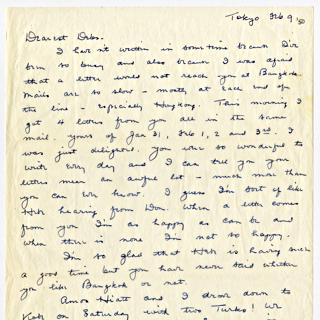 Tokyo Feb 9, '50
Dearest Debs -
I hav'nt written in some time because I've
been so busy and also because I was afraid
that a letter would not reach you at Bangkok
Mails are so slow - mostly at each end of
the line - especially Hongkong. This morning I
got 4 letters from you all in the same
mail. yours of Jan 31, Feb 1, 2 and 3rd. I
was just delighted. You were so wonderful to
write every day and I can tell you your
letters mean an awful lot - much more than
you can ever know. I guess I'm sort of like
hearing from Don. When a letter comes
from you I'm as happy as can be and
when there is none I'm not so happy.
I'm so glad that is having such
a good time but you have never said whether
you like Bangkok or not.
Amos Hiatt and I drove down to
on Saturday with two Turks! We